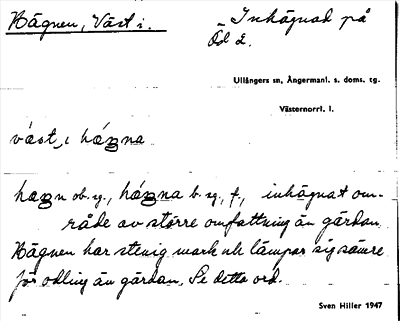 Hägnen, Väst i.
Inhägnad på
Öd 2.
Ullångers sn, Ångermanl. s. doms. tg.
Västernorrl. l.
väst, i hægna
hægn ob. sg., hægna b. sg., f., inhägnat om-
råde av större omfattning än gärdan.
Hägnen har stenig mark och lämpar sig sämre
för odling än gärdan. Se detta ord.
Sven Hiller 1947